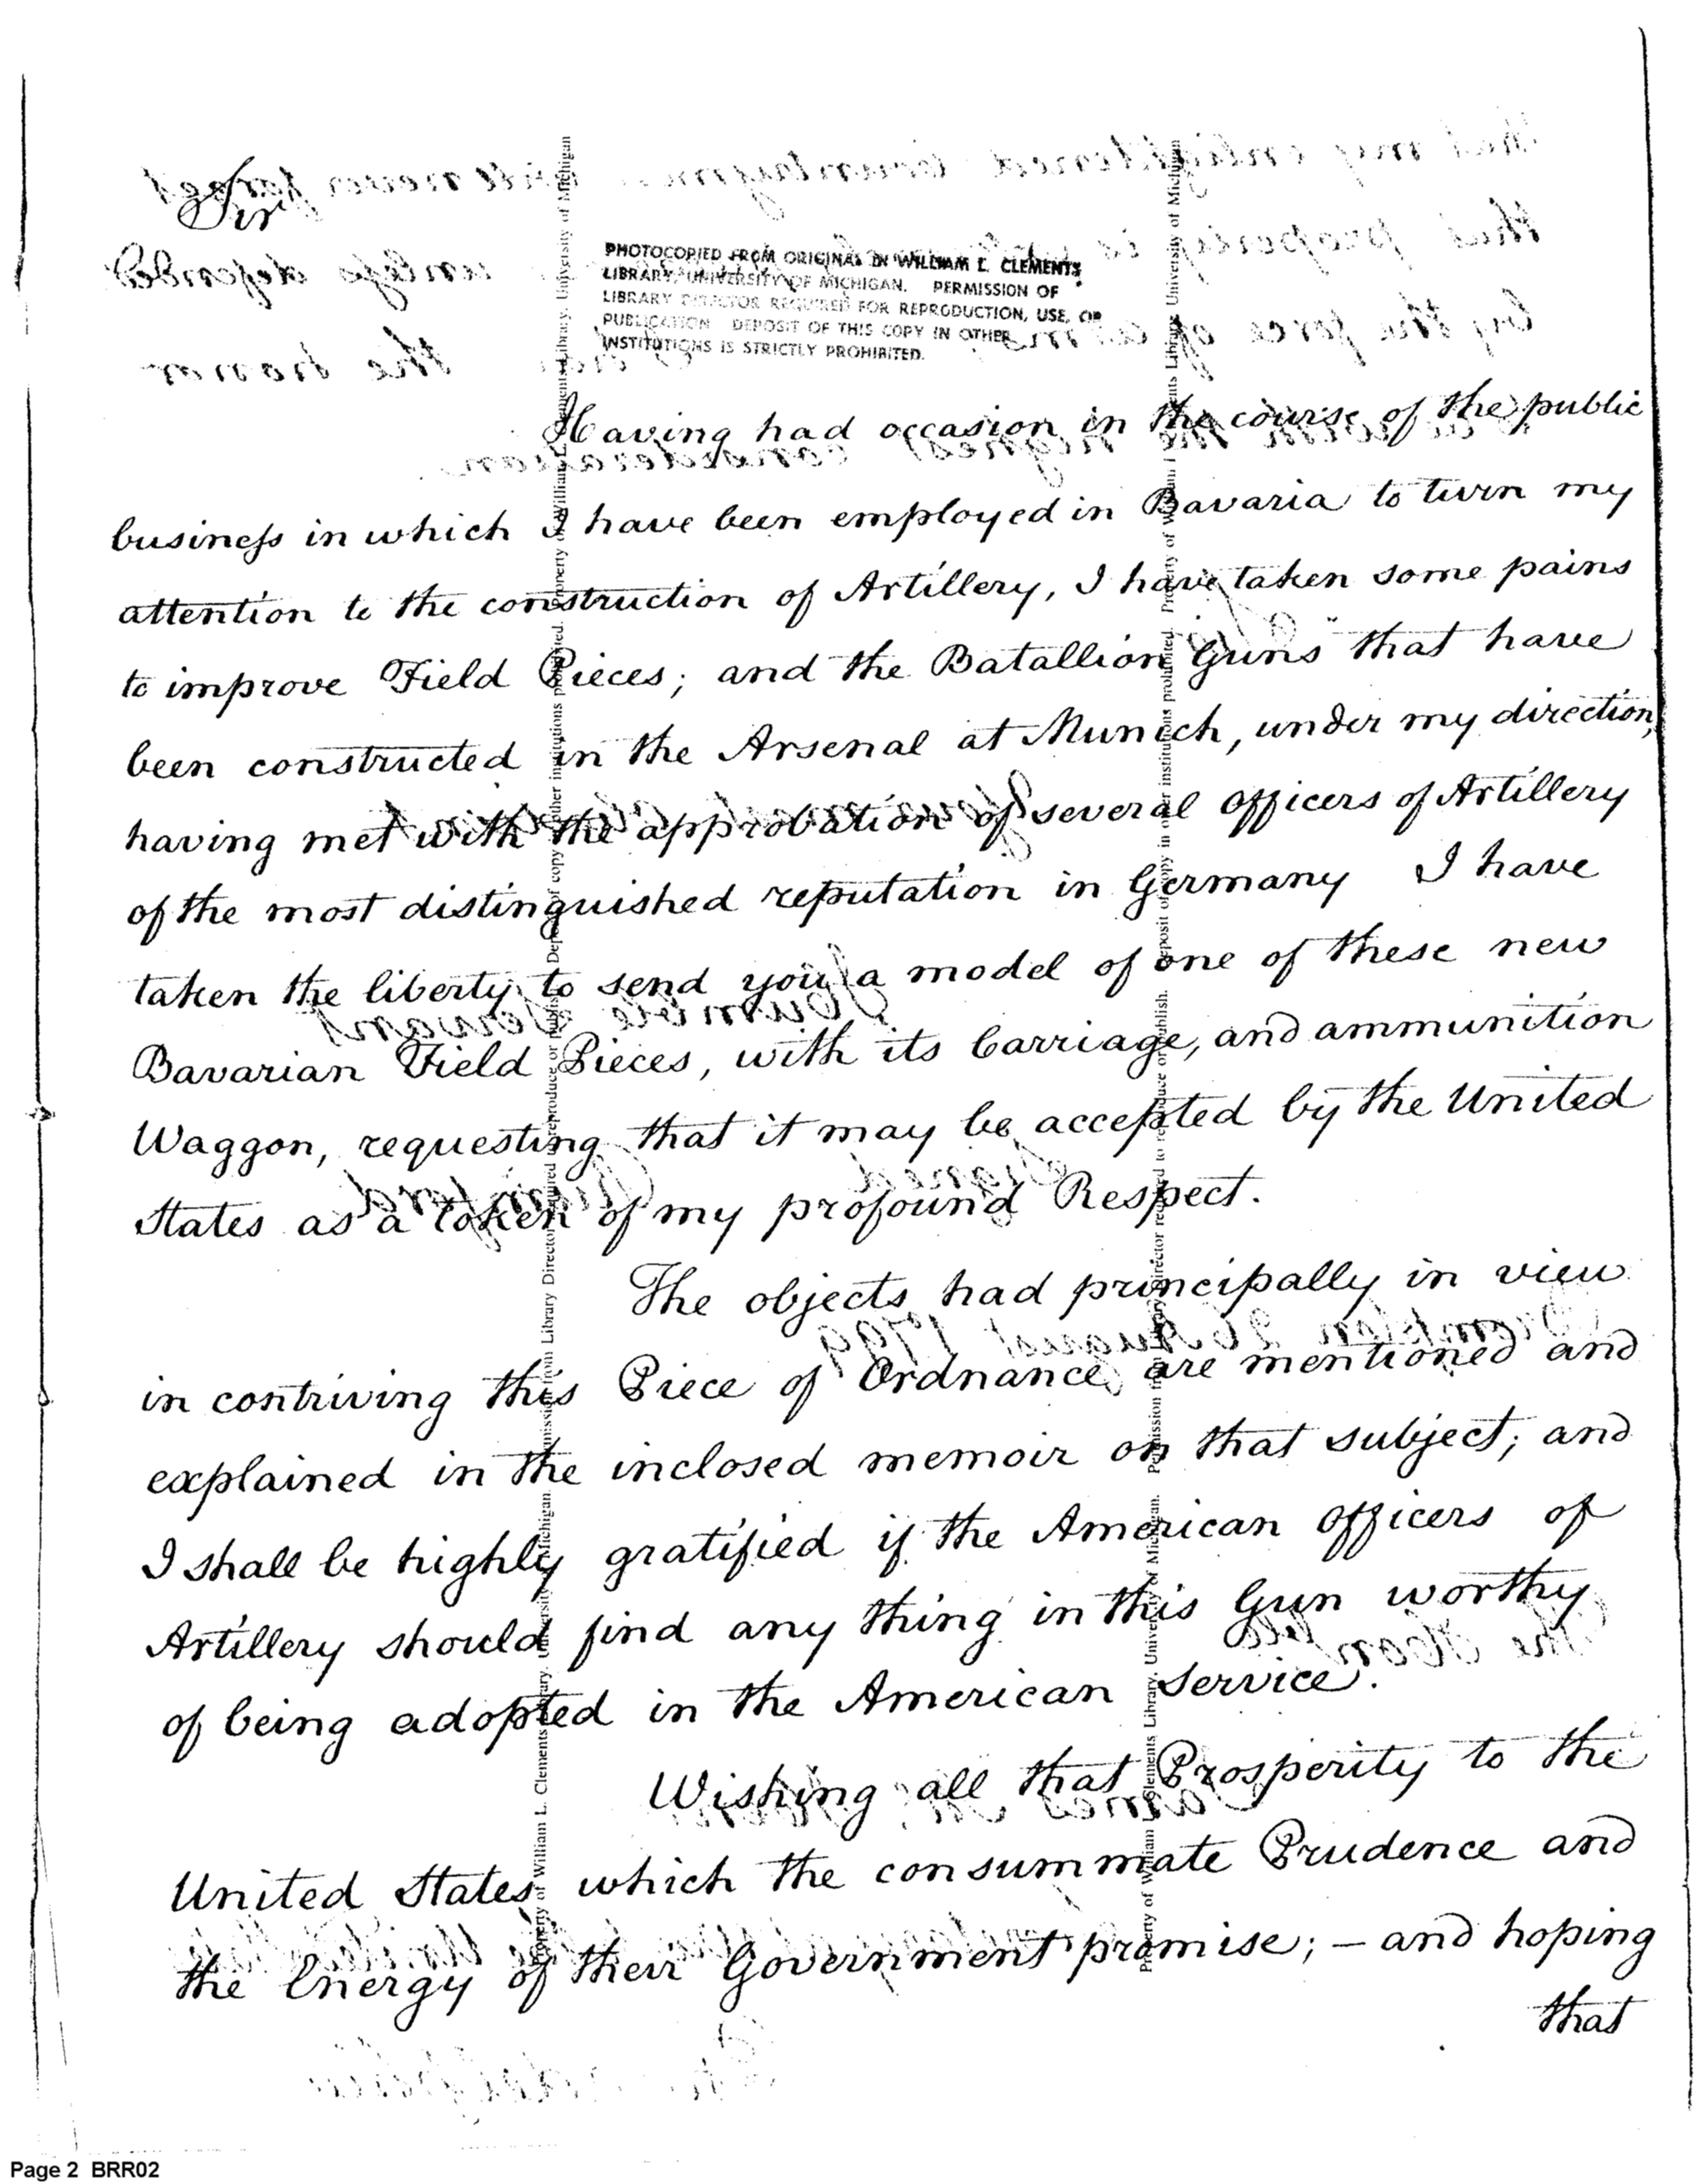 Sir
PHOTOCOPIED FROM ORIGINAL IN WILLIAM L. CLEMENTS
LIBRARY, UNIVERSITY OF MICHIGAN. PERMISSION OF
LIBRARY DIRECTOR REQUIRED FOR REPRODUCTION, USE, OR
PUBLICATION DEPOSIT OF THIS COPY IN OTHER
INSTITUTIONS IS STRICTLY PROHIBITED.
Having had occasion in the course of the public
business in which I have been employed in Bavaria to turn my
attention to the construction of Artillery, I have taken some pains
to improve Field Pieces; and the Batallion Guns that have
been constructed in the Arsenal at Munich, under my direction,
having met with the approbation of several officers of Artillery
of the most distinguished reputation in Germany I have
taken the liberty to send you a model of one of these new
Bavarian Field Pieces, with its Carriage, and ammunition
Waggon, requesting that it may be accepted by the United
States as a token of my profound Respect.
The objects had principally in view
in contriving this Piece of Ordnance are mentioned and
explained in the inclosed memoir on that subject; and
I shall be highly gratified if the American officers of
Artillery should find any thing in this Gun worthy
of being adopted in the American Service.
Wishing all that Prosperity to the
United States which the consummate Prudence and
the Energy of their Government promise; — and hoping
that
Property of William L. Clements Library, University of Michigan. Permission from Library Director required to reproduce or publish. Deposit of copy in other institutions prohibited. Property of William L. Clements Library, University of Michigan
Property of William L. Clements Library, University of Michigan. Permission from Library Director required to reproduce or publish. Deposit of copy in other institutions prohibited. Property of William L. Clements Library, University of Michigan
Page 2 BRR02